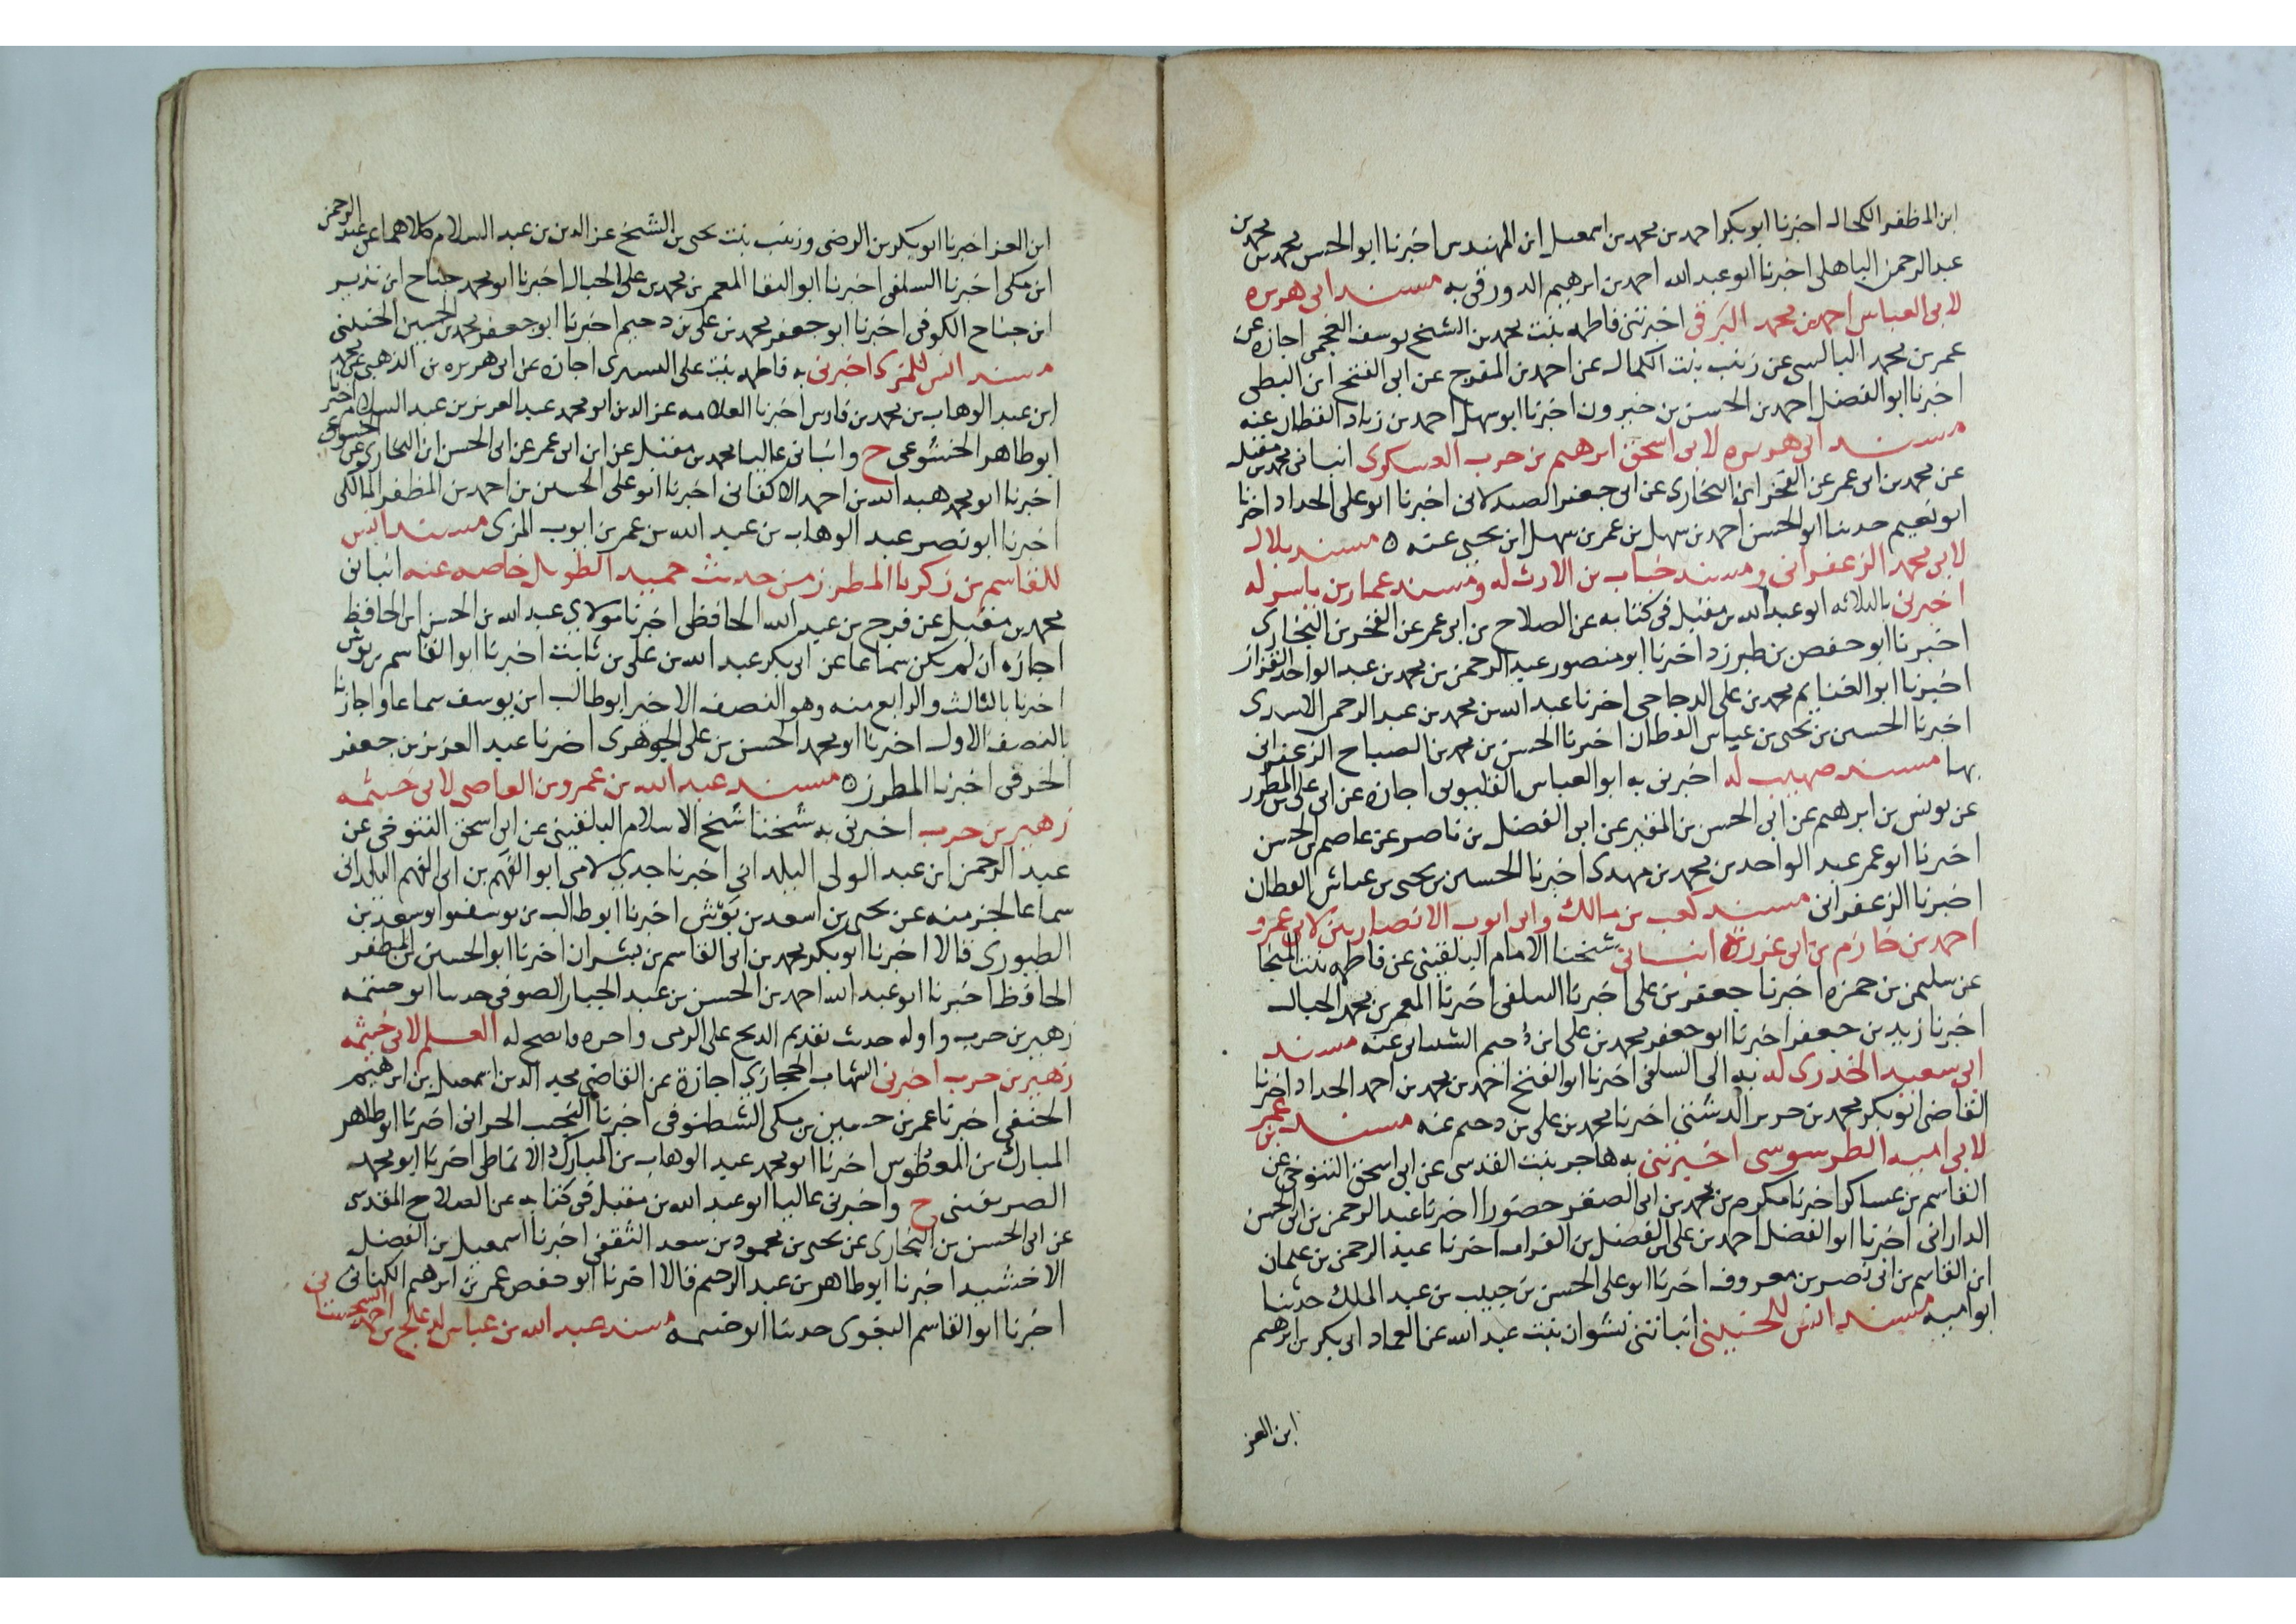 ابن المظفر الكحال اخبرنا ابو بكر احمد بن محمد بن اسمعيل ابن المهندس اخبرنا ابو الحسن محمد بن محمد بن
عبد الرحمن الباهلى اخبرنا ابو عبد الله احمد بن ابرهيم الدورقى به مسند ابى هريره
لابى العباس احمد بن محمد البرقى اخبرتنى فاطمه بنت محمد بن الشيخ يوسف العجمى اجازه عن
عمر بن محمد البالسى عن زينب بنت الكمال عن احمد بن المفرج عن ابى الفتح ابن البطى
اخبرنا ابو الفضل احمد بن الحسن بن خيرون اخبرنا ابو سهل احمد بن زياد القطان عنه
مسند ابى هريره لابى اسحق ابرهيم بن حرب العسكرى انبانى محمد بن مقبل
عن محمد بن ابى عمر عن الفخر ابن البخارى عن ابى جعفر الصيدلانى اخبرنا ابو على الحداد اخبرنا
ابو نعيم حدثنا ابو الحسن احمد بن سهل بن عمر بن سهل ابن يحيى عنه ه مسند بلال
لابى محمد الزعفرانى ومسند خباب بن الارث له ومسند عمار بن ياسر له
اخبرنى بالثلاثه ابو عبد الله بن مقبل فى كتابه عن الصلاح بن ابى عمر عن الفخر بن البخارى
اخبرنا ابو حفص بن طبرزد اخبرنا ابو منصور عبد الرحمن بن محمد بن عبد الواحد القزاز
اخبرنا ابو الغنايم محمد بن على الدجاجى اخبرنا عبد الله بن محمد بن عبد الرحمن الاسدى
اخبرنا الحسين بن يحيى بن عياش القطان اخبرنا الحسن بن محمد بن الصباح الزعفرانى
بها مسند صهيب له اخبرنى به ابو العباس القليوبى اجازه عن ابى على بن المطرز
عن يونس بن ابرهيم عن ابى الحسن بن المقير عن ابى الفضل بن ناصر عن عاصم بن الحسن
اخبرنا ابو عمر عبد الواحد بن محمد بن مهدى اخبرنا الحسين بن يحيى بن عياش القطان
اخبرنا الزعفرانى مسند كعب بن مالك وابى ايوب الانصاريين لابى عمرو
احمد بن خازم بن ابى غرزه انبانى شيخنا الامام البلقينى عن فاطمه بنت المنجا
عن سليمن بن حمزه اخبرنا جعفر بن على اخبرنا السلفى اخبرنا المعمر بن محمد الحبال
اخبرنا زيد بن جعفر اخبرنا ابو جعفر محمد بن على ابن دحيم الشيبانى عنه مسند
ابى سعيد الخدرى له به الى السلفى اخبرنا ابو الفتح احمد بن محمد بن احمد الحداد اخبرنا
القاضى ابو بكر محمد بن اخبرنا محمد بن على بن دحيم عنه مسند عمر بن
لابى اميه الطرسوسى اخبرتنى به هاجر بنت القدسى عن ابى اسحق التنوخى عن
القاسم بن عساكر اخبرنا مكرم بن محمد بن ابى الصقر حضورا اخبرنا عبد الرحمن بن ابى الحسن
الدارانى اخبرنا ابو الفضل احمد بن على بن الفضل بن الفرات اخبرنا عبد الرحمن بن عثمان
ابن القاسم بن ابى نصر بن معروف اخبرنا ابو على الحسن بن حبيب بن عبد الملك حدثنا
ابو اميه مسند انس للحنينى انباتنى نشوان بنت عبد الله عن العماد ابى بكر بن ابرهيم
ابن العز
ابن العز اخبرنا ابو بكر بن الرضى وزينب بنت يحيى بن الشيخ عز الدين بن عبد السلام كلاهما عن عبد الرحمن
ابن مكى اخبرنا السلفى اخبرنا ابو البقا المعمر بن محمد بن على الحبال اخبرنا ابو محمد جناح ابن نذير
ابن جناح الكوفى اخبرنا ابو جعفر محمد بن على بن دحيم اخبرنا ابو جعفر محمد بن الحسين الحنينى
مسند انس للمزى اخبرنى به فاطمه بنت على اليسرى اجازه عن ابى هريره بن الذهبى عن محمد
ابن عبد الوهاب بن محمد بن فارس اخبرنا العلامه عز الدين ابو محمد عبد العزيز بن عبد السلام اخبرنا
ابو طاهر الخشوعى ح وانبانى عاليا محمد بن مقبل عن ابن ابى عمر عن ابى الحسن ابن البخارى عن الخشوعى
اخبرنا ابو محمد هبه الله بن احمد الاكفانى اخبرنا ابو على الحسين بن احمد بن المظفر المالكى
اخبرنا ابو نصر عبد الوهاب بن عبد الله بن عمر بن ايوب المزى مسند انس
للقاسم بن زكريا المطرز من حديث حميد الطويل خاصه عنه انبانى
محمد بن مقبل عن فرج بن عبد الله الحافظى اخبرنا مولاى عبد الله بن الحسن ابن الحافظ
اجازه ان لم يكن سماعا عن ابى بكر عبد الله بن على بن ثابت اخبرنا ابو القاسم بن بوش
اخبرنا بالثالث والرابع منه وهو النصف الاخير ابو طالب ابن يوسف سماعا واجازنا
بالنصف الاول اخبرنا ابو محمد الحسن بن على الجوهرى اخبرنا عبد العزيز بن جعفر
الخرقى اخبرنا المطرز ه مسند عبد الله بن عمرو بن العاصى لابى خيثمه
زهير بن حرب اخبرنى به شيخنا شيخ الاسلام البلقينى عن ابى اسحق التنوخى عن
عبد الرحمن ابن عبد الولى اليلدانى اخبرنا جدى لامى ابو الفهم بن ابى الفهم اليلدانى
سماعا لجز منه عن يحيى بن اسعد بن بوش اخبرنا ابو طالب بن يوسف وابو سعد بن
الطيورى قالا اخبرنا ابو بكر محمد بن ابى القاسم بن بشران اخبرنا ابو الحسين بن المظفر
الحافظ اخبرنا ابو عبد الله احمد بن الحسن بن عبد الجبار الصوفى حدثنا ابو خيثمه
زهير بن حرب واوله حديث تقديم الذبح على الرمى واخره العلم لابى خيثمه
زهير بن حرب اخبرنى الشهاب الحجازى اجازة عن القاضى مجد الدين اسمعيل بن ابرهيم
الحنفى اخبرنا عمر بن حسين بن مكى الشطنوفى اخبرنا النجيب الحرانى اخبرنا ابو طاهر
المبارك بن المعطوش اخبرنا ابو محمد عبد الوهاب بن المبارك الانماطى اخبرنا ابو محمد
الصريفينى ح واخبرنى عاليا ابو عبد الله بن مقبل فى كتابه عن الصلاح المقدسى
عن ابى الحسن بن البخارى عن يحيى بن محمود بن سعد الثقفى اخبرنا اسمعيل بن الفضل
الاخشيد اخبرنا ابو طاهر بن عبد الرحيم قالا اخبرنا ابو حفص عمر بن ابرهيم الكتانى
اخبرنا ابو القاسم البغوى حدثنا ابو خيثمه مسند عبد الله بن عباس لدعلج بن احمد السجستانى